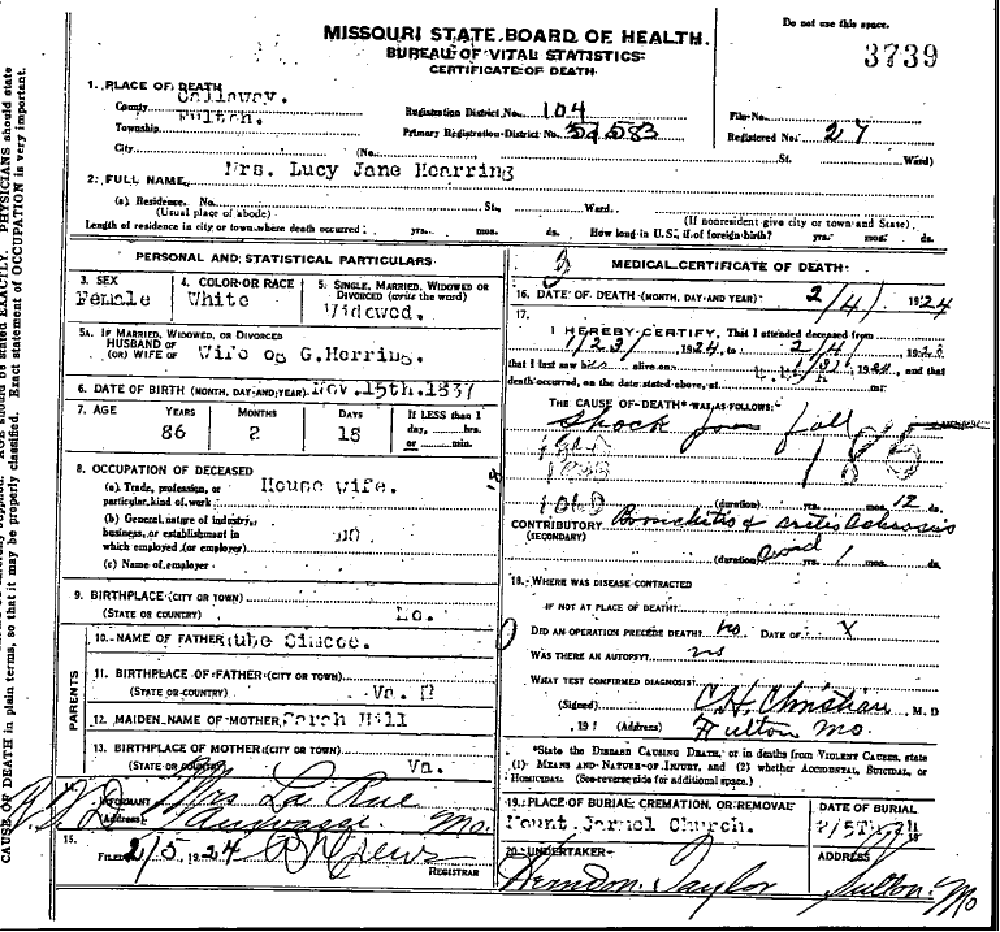 MISSOURI STATE BOARD OF HEALTH.
BUREAU OF VITAL STATISTICS
CERTIFICATE OF DEATH
Do not use this space.
3739
1. PLACE OF DEATH
County Calloway.
Township Fulton.
City (No. St. Ward)
Registration District No. 104
Primary Registration District No. 583
File No.
Registered No. 27
2. FULL NAME Mrs. Lucy Jane Hearring
(a) Residence. No. St., Ward.
(Usual place of abode) (If nonresident give city or town and State)
Length of residence in city or town where death occurred yrs. mos. ds. How long in U.S., if of foreign birth? yrs. mos. ds.
PERSONAL AND STATISTICAL PARTICULARS
3. SEX
Female
4. COLOR OR RACE
White
5. SINGLE, MARRIED, WIDOWED OR
DIVORCED (write the word)
Widowed.
5a. IF MARRIED, WIDOWED, OR DIVORCED
HUSBAND OF
(OR) WIFE OF Wife og G.Herring.
6. DATE OF BIRTH (MONTH, DAY AND YEAR) Nov.15th.1837
7. AGE YEARS MONTHS DAYS If LESS than 1
day, hrs.
or min.
86 2 18
8. OCCUPATION OF DECEASED
(a) Trade, profession, or
particular kind of work House wife.
(b) General nature of industry,
business, or establishment in
which employed (or employer)
(c) Name of employer
9. BIRTHPLACE (CITY OR TOWN)
(STATE OR COUNTRY) Mo.
PARENTS
10. NAME OF FATHER Simcoe.
11. BIRTHPLACE OF FATHER (CITY OR TOWN)
(STATE OR COUNTRY) Va.
12. MAIDEN NAME OF MOTHER Sarah Hill
13. BIRTHPLACE OF MOTHER (CITY OR TOWN)
(STATE OR COUNTRY) Va.
INFORMANT Mrs La Rue
(Address) Auxvasse Mo.
15.
FILED 2/5 1924
REGISTRAR
MEDICAL CERTIFICATE OF DEATH
16. DATE OF DEATH (MONTH, DAY AND YEAR) 2/4/ 1924
17.
I HEREBY CERTIFY, That I attended deceased from
1/23/ 1924, to 2/4/ 192
that I last saw h alive on 192, and that
death occurred, on the date stated above, at m.
THE CAUSE OF DEATH* WAS AS FOLLOWS:
Shock from fall
(duration) yrs. mos. 12 ds.
CONTRIBUTORY Bronchitis &
(SECONDARY)
(duration) yrs. mos. ds.
18. WHERE WAS DISEASE CONTRACTED
IF NOT AT PLACE OF DEATH?
DID AN OPERATION PRECEDE DEATH? No DATE OF X
WAS THERE AN AUTOPSY? no
WHAT TEST CONFIRMED DIAGNOSIS?
(Signed) C.H. Christian, M.D
, 19 (Address) Fulton Mo.
*State the DISEASE CAUSING DEATH, or in deaths from VIOLENT CAUSES, state
(1) MEANS AND NATURE OF INJURY, and (2) whether ACCIDENTAL, SUICIDAL, or
HOMICIDAL. (See reverse side for additional space.)
19. PLACE OF BURIAL, CREMATION, OR REMOVAL
Mount Carmel Church.
DATE OF BURIAL
2/5TH 24
20. UNDERTAKER
Herndon Taylor
ADDRESS
Fulton Mo
PHYSICIANS should state
Exact statement of OCCUPATION is very important.
CAUSE OF DEATH in plain terms, so that it may be properly classified.